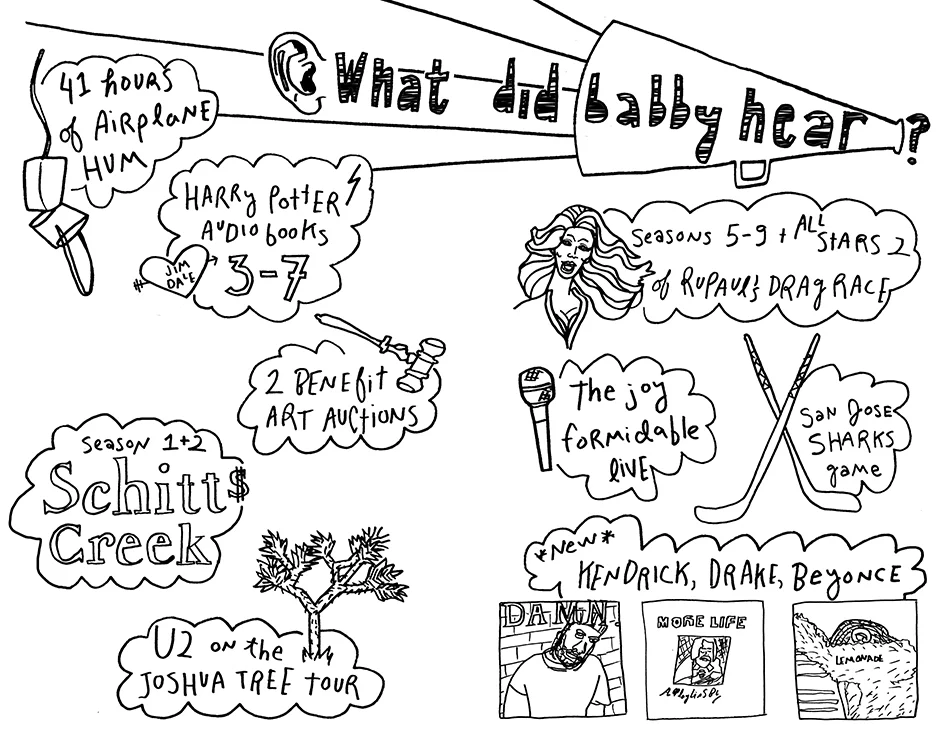 What did babby hear?
41 hours
of AiRplANE
HUM
HARRy PottER
AUDiO books
3-7
#
JIM
DALE
Seasons 5-9 + All
StARS 2
of RuPAUl's DRAg RACE
2 BENEfit
ART AUCtiONS
The joy
foRmidable
liVE
SaN JOSE
SHARKS
game
Season 1+2
Schitt$
Creek
U2 on the
JOSHUA TREE tOUR
*New*
KENDRICK, DRAKE, Beyonce
DAMN.
MORE LIFE
LEMONADE